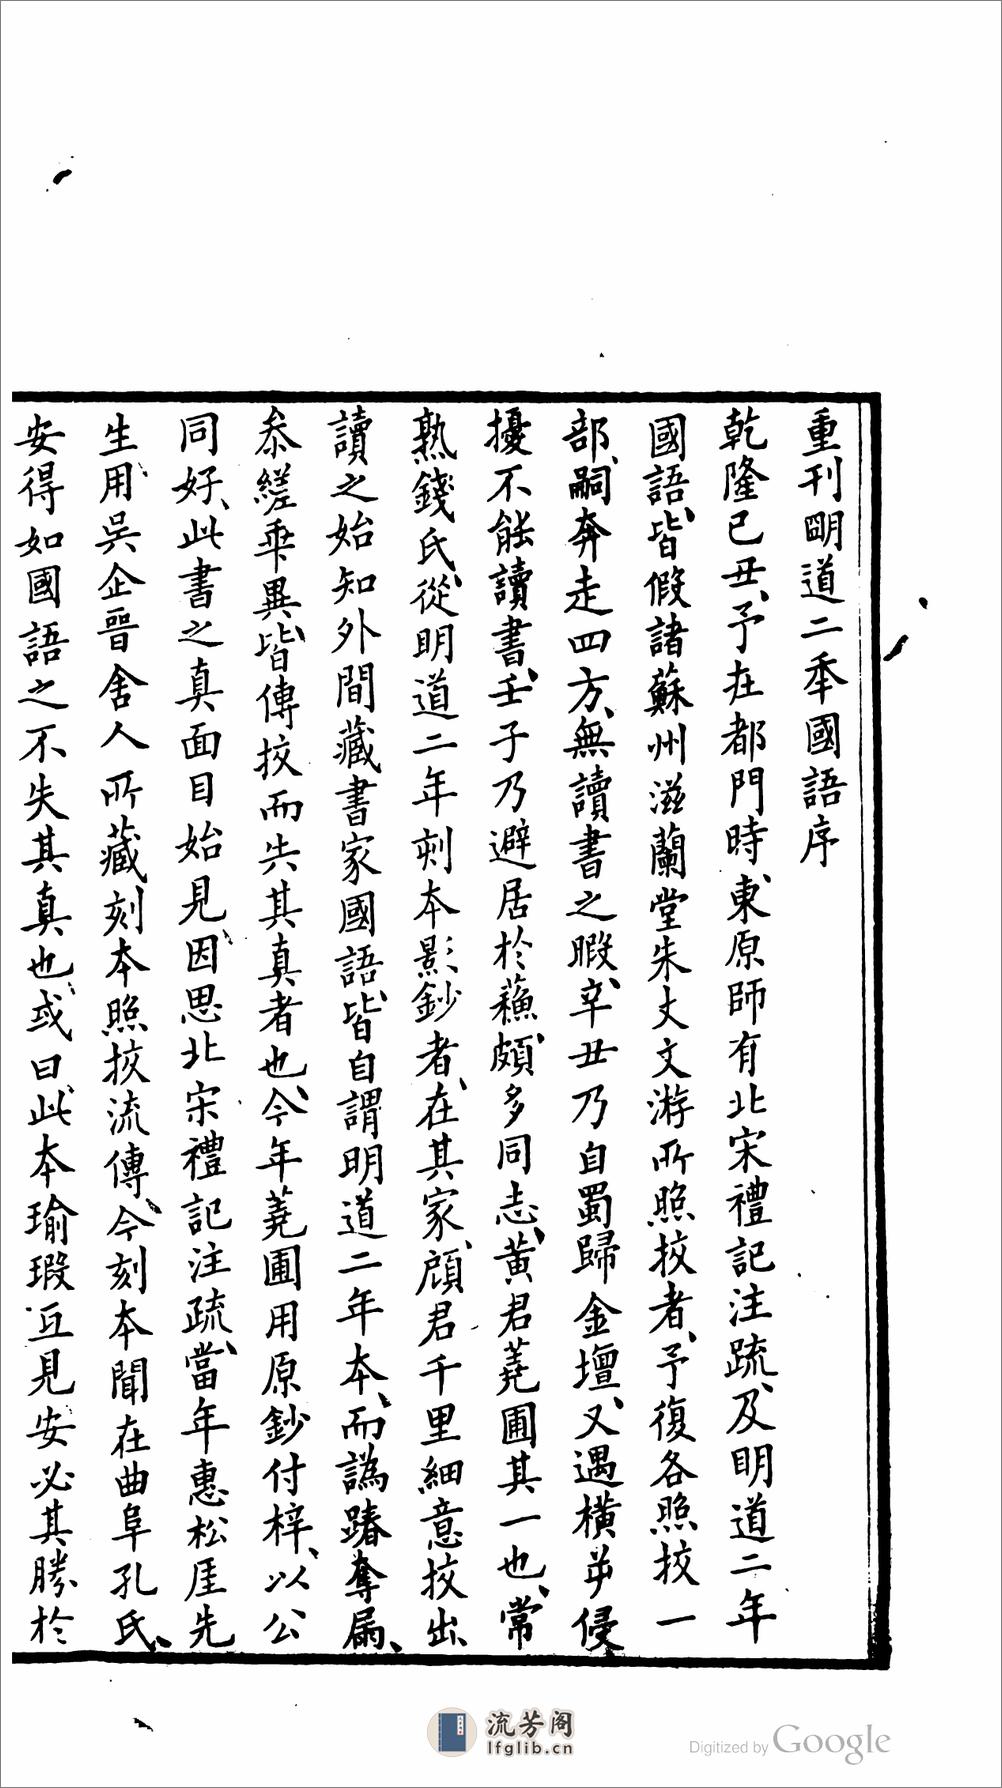 重刊朙道二秊國語序
乾隆己丑、予在都門時、東原師有北宋禮記注疏、及明道二年
國語、皆假諸蘇州滋蘭堂朱丈文游所照挍者、予復各照挍一
部、嗣奔走四方、無讀書之暇、辛丑乃自蜀歸金壇、又遇橫逆侵
擾不能讀書、壬子乃避居於蘓、頗多同志、黃君蕘圃其一也、常
熟錢氏從明道二年刺本影鈔者、在其家、顧君千里細意挍出、
讀之始知外間藏書家國語、皆自謂明道二年本、而譌踳奪扁、
叅縒乖異、皆傳挍而失其真者也、今年蕘圃用原鈔付梓、以公
同好、此書之真面目始見、因思北宋禮記注疏、當年惠松厓先
生用吳企晉舍人所藏刻本照挍流傳、今刻本聞在曲阜孔氏、
安得如國語之不失其真也、或曰、此本瑜瑕互見、安必其勝於
流芳阁
lfglib.cn
Digitized by Google